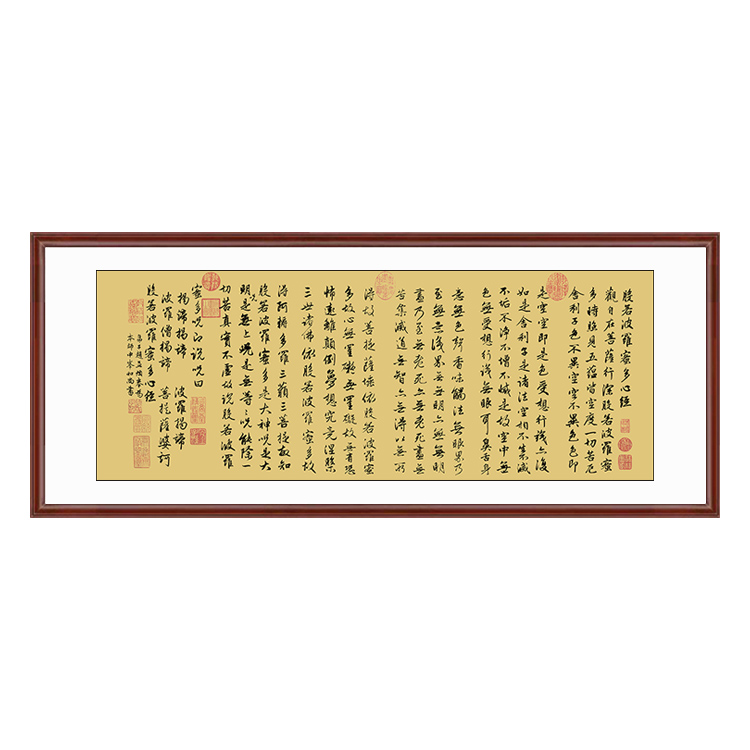 般若波羅蜜多心經
觀自在菩薩行深般若波羅蜜
多時照見五蘊皆空度一切苦厄
舍利子色不異空空不異色色即
是空空即是色受想行識亦復
如是舍利子是諸法空相不生滅
不垢不淨不增不減是故空中無
色無受想行識無眼耳鼻舌身
意無色聲香味觸法無眼界乃
至無識界無無明亦無無明
盡乃至無老死亦無老死盡無
苦集滅道無智亦無得以無所
得故菩提薩埵依般若波羅蜜
多故心無罣礙無罣礙故無有恐
怖遠離顛倒夢想究竟涅槃
三世諸佛依般若波羅蜜多故
得阿耨多羅三藐三菩提故知
般若波羅蜜多是大神咒是大
明咒是無上咒是無等等咒能除一
切苦真實不虛故說般若波羅
蜜多咒即說咒曰
揭諦揭諦 波羅揭諦
波羅僧揭諦 菩提薩婆訶
般若波羅蜜多心經
弟子趙孟頫奉為
本師中峯和尚書